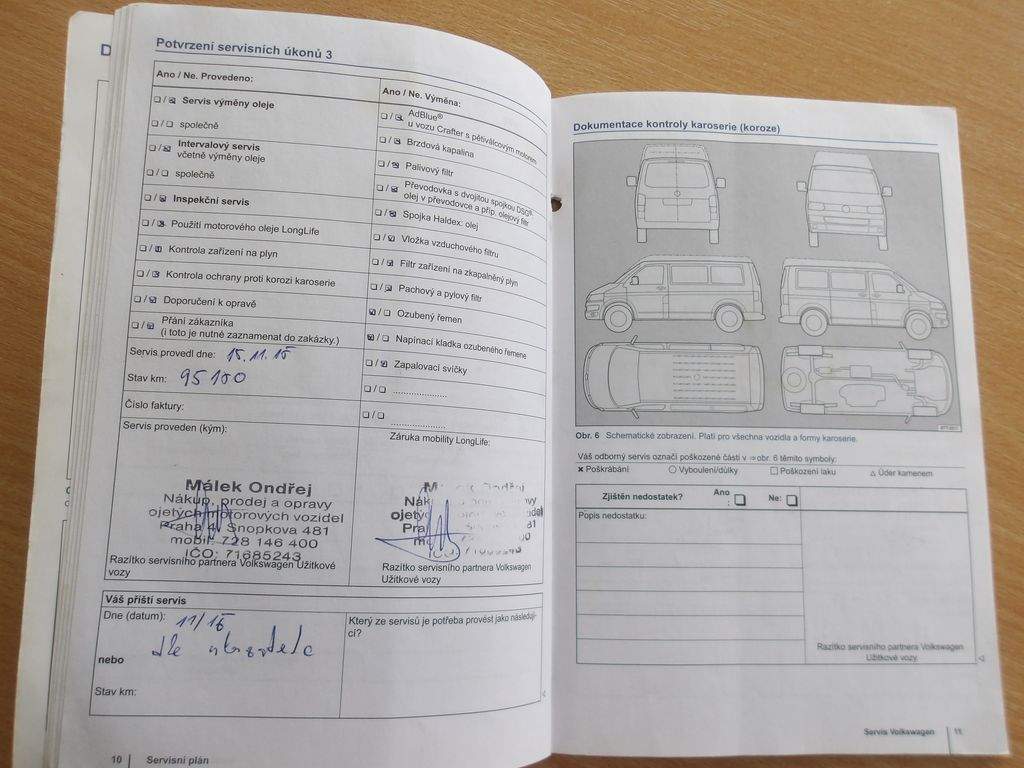 D
Potvrzení servisních úkonů 3
Ano / Ne. Provedeno:
❏ / ❏ Servis výměny oleje
❏ / ❏ společně
❏ / ❏ Intervalový servis
včetně výměny oleje
❏ / ❏ společně
❏ / ❏ Inspekční servis
❏ / ❏ Použití motorového oleje LongLife
❏ / ❏ Kontrola zařízení na plyn
❏ / ❏ Kontrola ochrany proti korozi karoserie
❏ / ❏ Doporučení k opravě
❏ / ❏ Přání zákazníka
(i toto je nutné zaznamenat do zakázky.)
Servis provedl dne: 15.11.15
Stav km: 95100
Číslo faktury:
Servis proveden (kým):
Málek Ondřej
Nákup, prodej a opravy
ojetých motorových vozidel
Praha 4, Šnopkova 481
mobil: 728 146 400
IČO: 71685243
Razítko servisního partnera Volkswagen Užitkové
vozy
Ano / Ne. Výměna:
❏ / ❏ AdBlue®
u vozu Crafter s pětiválcovým motorem
❏ / ❏ Brzdová kapalina
❏ / ❏ Palivový filtr
❏ / ❏ Převodovka s dvojitou spojkou DSG®:
olej v převodovce a příp. olejový filtr
❏ / ❏ Spojka Haldex: olej
❏ / ❏ Vložka vzduchového filtru
❏ / ❏ Filtr zařízení na zkapalněný plyn
❏ / ❏ Pachový a pylový filtr
❏ / ❏ Ozubený řemen
❏ / ❏ Napínací kladka ozubeného řemene
❏ / ❏ Zapalovací svíčky
❏ / ❏ .....................
❏ / ❏ .....................
Záruka mobility LongLife:
Razítko servisního partnera Volkswagen
Užitkové vozy
Váš příští servis
Dne (datum): 11/16
dle ukazatele
nebo
Stav km:
Který ze servisů je potřeba provést jako následují-
cí?
10 | Servisní plán
Dokumentace kontroly karoserie (koroze)
Obr. 6 Schematické zobrazení. Platí pro všechna vozidla a formy karoserie.
Váš odborný servis označí poškozené části v ⇒ obr. 6 těmito symboly:
× Poškrábání ○ Vyboulení/důlky □ Poškození laku △ Úder kamenem
Zjištěn nedostatek? Ano
: ❏ Ne: ❏
Popis nedostatku:
Razítko servisního partnera Volkswagen
Užitkové vozy
Servis Volkswagen | 11